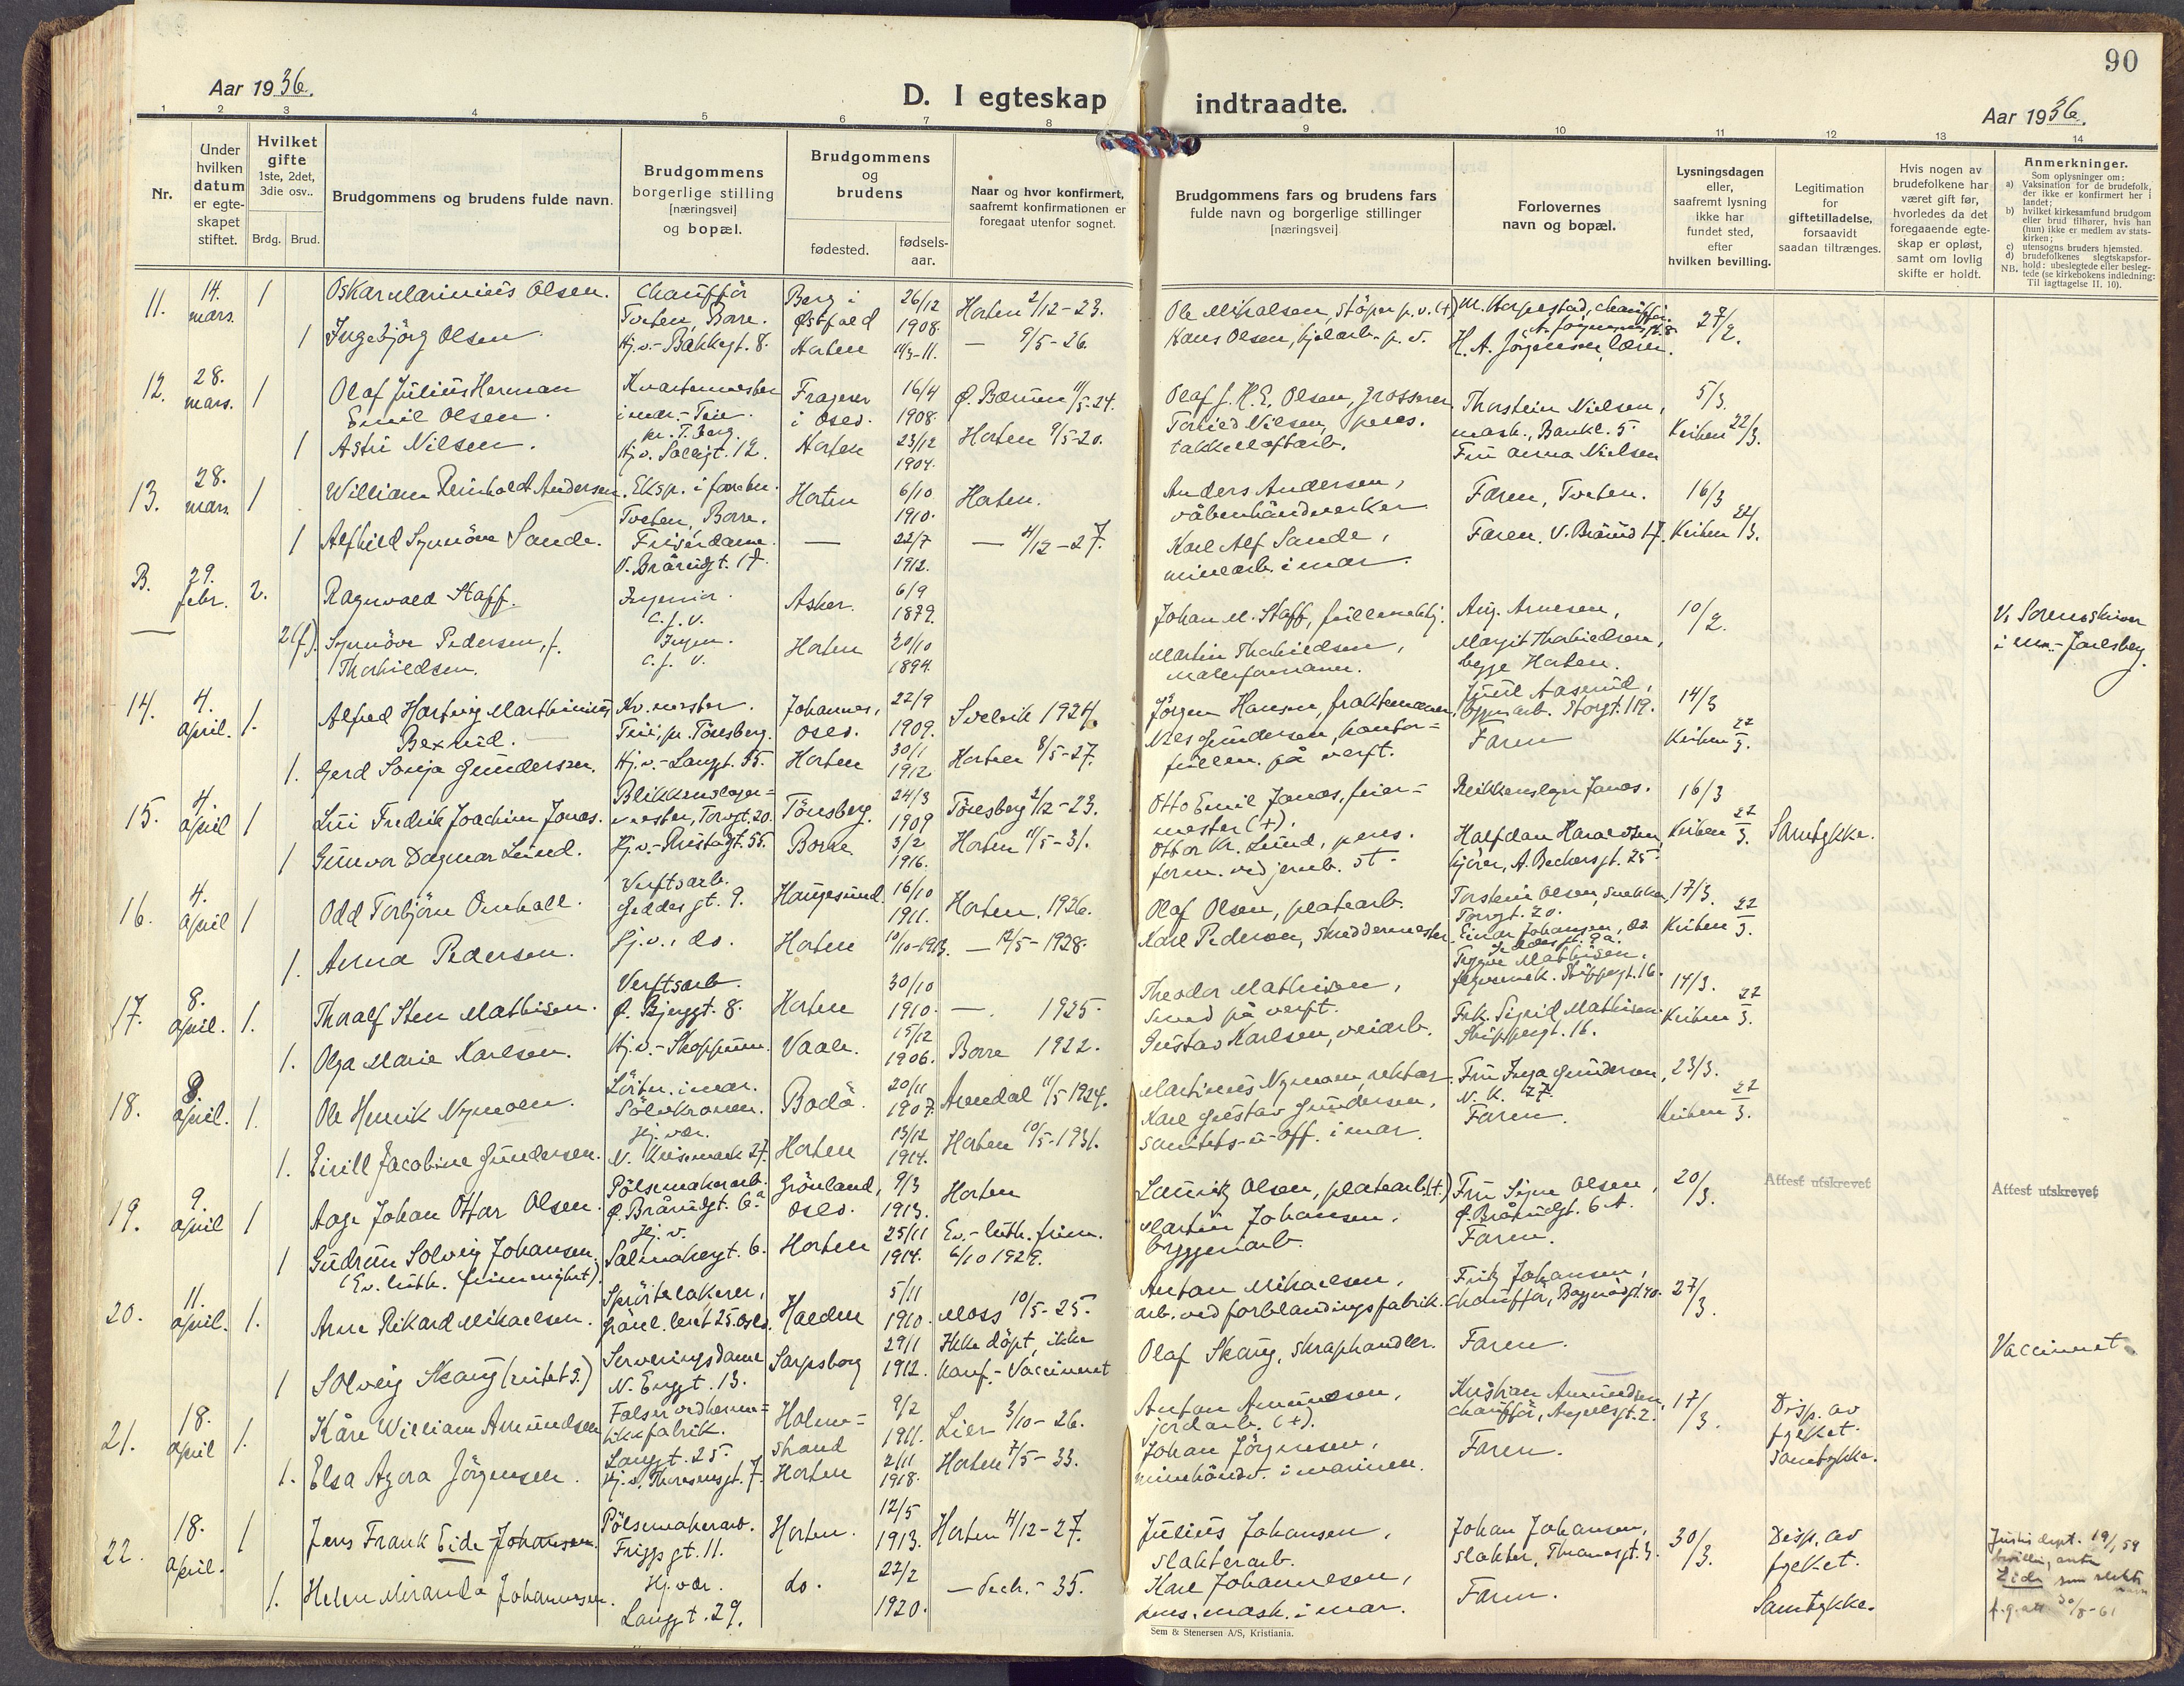 90
Aar 1936.
D. I egteskap indtraadte.
Aar 1936.
1 2 3 4 5 6 7 8 9 10 11 12 13 14
Nr.
Under hvilken datum er egteskapet stiftet.
Hvilket gifte 1ste, 2det, 3die osv..
Brdg. Brud.
Brudgommens og brudens fulde navn.
Brudgommens borgerlige stilling [næringsvei] og bopæl.
Brudgommens og brudens
fødested. fødsels-aar.
Naar og hvor konfirmert, saafremt konfirmationen er foregaat utenfor sognet.
Brudgommens fars og brudens fars fulde navn og borgerlige stillinger [næringsvei]
Forlovernes navn og bopæl.
Lysningsdagen eller, saafremt lysning ikke har fundet sted, efter hvilken bevilling.
Legitimation for giftetilladelse, forsaavidt saadan tiltrænges.
Hvis nogen av brudefolkene har været gift før, hvorledes da det foregaaende egteskap er opløst, samt om lovlig skifte er holdt.
Anmerkninger.
Som oplysninger om:
a) Vaksination for de brudefolk, der ikke er konfirmert her i landet;
b) hvilket kirkesamfund brudgom eller brud tilhører, hvis han (hun) ikke er medlem av statskirken;
c) utensogns bruders hjemsted.
d) brudefolkenes slegtskapsforhold: ubeslegtede eller beslegtede (se kirkebokens indledning:
NB. Til iagttagelse II. 10).
11. 14. mars. 1 Oskar Marinius Olsen. Chaufför Tveten, Borre. Berg i Østfold 26/12 1908. Horten 2/12-23. Ole Mikalsen, Stöper p. v. (+) chaufför. 27/2.
1 Ingebjörg Olsen. Hj.v.- Bakkegt. 8. Horten 11/3-11. — 9/5-26. Hans Olsen, hjelearb. p. v. H. A. Jörgensen, lærer.
12. 28. mars. 1 Olaf Julius Herman Emil Olsen. Kvartermester i mar.- Teie pr. T.berg. Frogner i Oslo. 16/4 1908. Ø. Bærum 11/5-24. Olaf J. H. E. Olsen, grosserer. Thorstein Nielsen, mask., Bankl. 5. 5/3.
1 Astri Nilsen. Hj.v. Solligt. 12. Horten 23/12 1904. Horten 9/5-20. Nilsen, pens. takkelloftarb. Fru Anna Nielsen Kirken 22/3.
13. 28. mars. 1 William Reinholdt Andersen. Eksp. i farvehr. Tveten, Borre. Horten 6/10 1910. Horten. Anders Andersen, våbenhåndverker Faren, Tveten. 16/3
1 Alfhild Synnöve Sande. Frisördame. V. Brårudgt. 17. — 22/7 1912. — 4/12-27. Karl Alf Sande, minearb. i mar. Faren. V. Brårud 17. Kirken 22/3.
B. 29. febr. 2. Ragnvald Staff. Ingeniör. C.f.V. Asker. 6/9 1879. Johan M. Staff, fullmektig. Aug. Arnesen, 10/2. V. Sorenskriver i mn.- Jarlsberg.
2(f). Synnöve Pedersen, f. Thorkildsen. Ingen. C.f.V. Horten 20/10 1894. Martin Thorkildsen, malerformann. Margit Thorkildsen, begge Horten.
14. 4. april. 1. Alfred Hartvig Marthinius Bexrud. Kv.mester. Teie, pr. Tönsberg. Johannes, Oslo. 22/9 1909. Svelvik 1924. Jörgen Hansen, fraktemann. Juul Aasrud, byggn.arb. Storgt. 119. 14/3
1. Gerd Sonja Gundersen. Hj.v.- Langgt. 55. Horten 30/1 1912 Horten 8/5-27. Nils Gundersen, kontorfullm. på verft. Faren Kirken 22/3.
15. 4. april 1 Lui Fredrik Joachim Jonas. Blikkenslagermester, Torvgt. 20. Tönsberg. 24/3 1909 Tönsberg 2/12-23. Otto Emil Jonas, feiermester (+). Blikkenslager Jonas. 16/3
1 Gunvor Dagmar Lund. Hj.v.- Rustadgt. 55. Borre 3/2 1916. Horten 11/5-31. Ottar Kr. Lund, pens. form. ved jernb. st. Halfdan Haraldsen, kjörer, A. Beckersgt. 25. Kirken 22/3. Samtykke.
16. 4. april 1 Odd Torbjörn Omholl. Verftsarb. Geddesgt. 9. Haugesund. 16/10 1911. Horten. 1926. Olaf Olsen, platearb. Torstein Olsen, snekker, Torvgt. 20. 17/3.
1. Anna Pedersen. Hj.v., do. Horten 10/10-1913. — 12/5-1928. Karl Pedersen, skreddermester. Einar Johansen, do. Geddesgt. 9a. Kirken 22/3.
17. 8. april. 1. Thoralf Sten Mathisen. Verftsarb. Ø. Bjerggt. 8. Horten 30/10 1910. — 1925. Theodor Mathisen, smed på verft. Trygve Mathisen, Skippergt. 16. 14/3.
1. Olga Marie Karlsen. Hj.v.- Skoppum. Vaale. 15/12 1906. Borre 1922. Gustav Karlsen, veiarb. Frk. Sigrid Mathisen. Skippergt. 16. Kirken 22/3.
18. 8. april. 1. Ole Henrik Nymoen. Löitn. i mar. Sölvkronen. Bodö. 20/11 1907. Arendal 11/5-1924. Martinius Nymoen, rektor. Fru Inga Gundersen, N. K. 27. 23/3.
1. Eirill Jacobine Gundersen. Hj. vær. N. Keisemark 27. Horten 13/12 1914. Horten 10/5-1931. Karl Gustav Gundersen, sanitets-u-off. i mar. Faren. Kirken 22/3.
19. 9. april 1 Aage Johan Ottar Olsen. Pölsemakerarb. Ø. Brårudgt. 6a Grönland, Oslo. 9/3 1913. Horten Lauritz Olsen, platearb. (+.) Fru Signe Olsen, Ø. Brårudgt. 6 A. 20/3. Attest utskrevet Attest utskrevet
1 Gudrun Solveig Johansen. (Ev. luth. frimenighet). Hj.v. Salmakergt. 6. Horten 25/11 1914. Ev.- luth. frim. 6/10 1929. Martin Johansen, bryggeriarb. Faren.
20. 11. april. 1. Arne Rikard Mikaelsen. Spröitelakerer, Grönl. leret 25. Oslo. Halden 5/11 1910. Moss 10/5-25. Anton Mikaelsen, arb. ved forblandingsfabrik. Fritz Johansen, chauffør, 27/3.
1 Solveig Skaug Serveringsdame N. Enggt. 13. Sarpsborg 29/1 1912. Ikke döpt, ikke konf.- Vaccineret Olaf Skaug, skraphandler. Faren. Vaccineret
21. 18. april 1. Kåre William Amundsen Falser ved hermetikkfabrik. Langgt. 25. Holmestrand 9/2 1911. Lier 3/10-26. Anton Amundsen, jordarb. (+). Kristian Amundsen, chauffør, 17/3. Disp. av fylket. Samtykke.
1. Elsa Agora Jörgensen. Hj.v. Thoresensgt. 7. Horten 2/11 1918. Horten 7/5-33. Johan Jörgensen, minehåndv. i marinen. Faren.
22. 18. april. 1 Jens Frank Eide Johansen. Pölsemakerarb. Friggsgt. 11. Horten. 12/5 1913. Horten 4/12-27. Julius Johansen, slakterarb. Johan Johansen, slakter, Thranesgt. 3. 30/3. Disp. av fylket. Samtykke. Justisdept. 19/1 59 bevilling anta Eide som slektsnavn
1. Helen Miranda Johannesen. Hj.vær. Langgt. 29. do. 22/2 1920. — dech.- 35. Karl Johannesen, pens. mask. i mar. Faren. 30/8-61
Sem & Stenersen A/S, Kristiania.